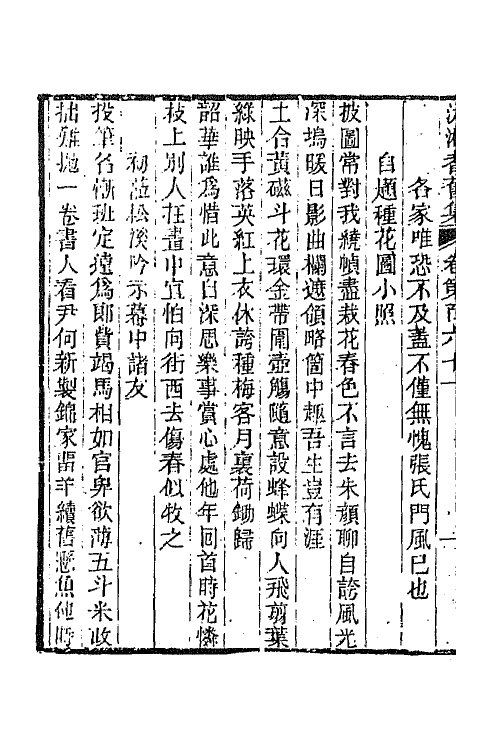 沅湘耆舊集 卷第百六十一
各家唯恐不及蓋不僅無愧張氏門風已也
自題種花圖小照
披圖常對我繞幀盡栽花春色不言去朱顏聊自誇風光
深塢暖日影曲欄遮領略箇中趣吾生豈有涯
土合黃磁斗花環金帶圍壺觴隨意設蜂蝶向人飛剪葉
綠映手落英紅上衣休誇種梅客月裏荷鋤歸
韶華誰爲惜此意自深思樂事賞心處他年回首時花憐
枝上別人在畫中宜怕向街西去傷春似牧之
初蒞松溪吟示幕中諸友
投筆名慚班定遠爲郎貲竭馬相如官卑欲薄五斗米政
拙難拋一卷書人看尹何新製錦家留羊續舊懸魚他時